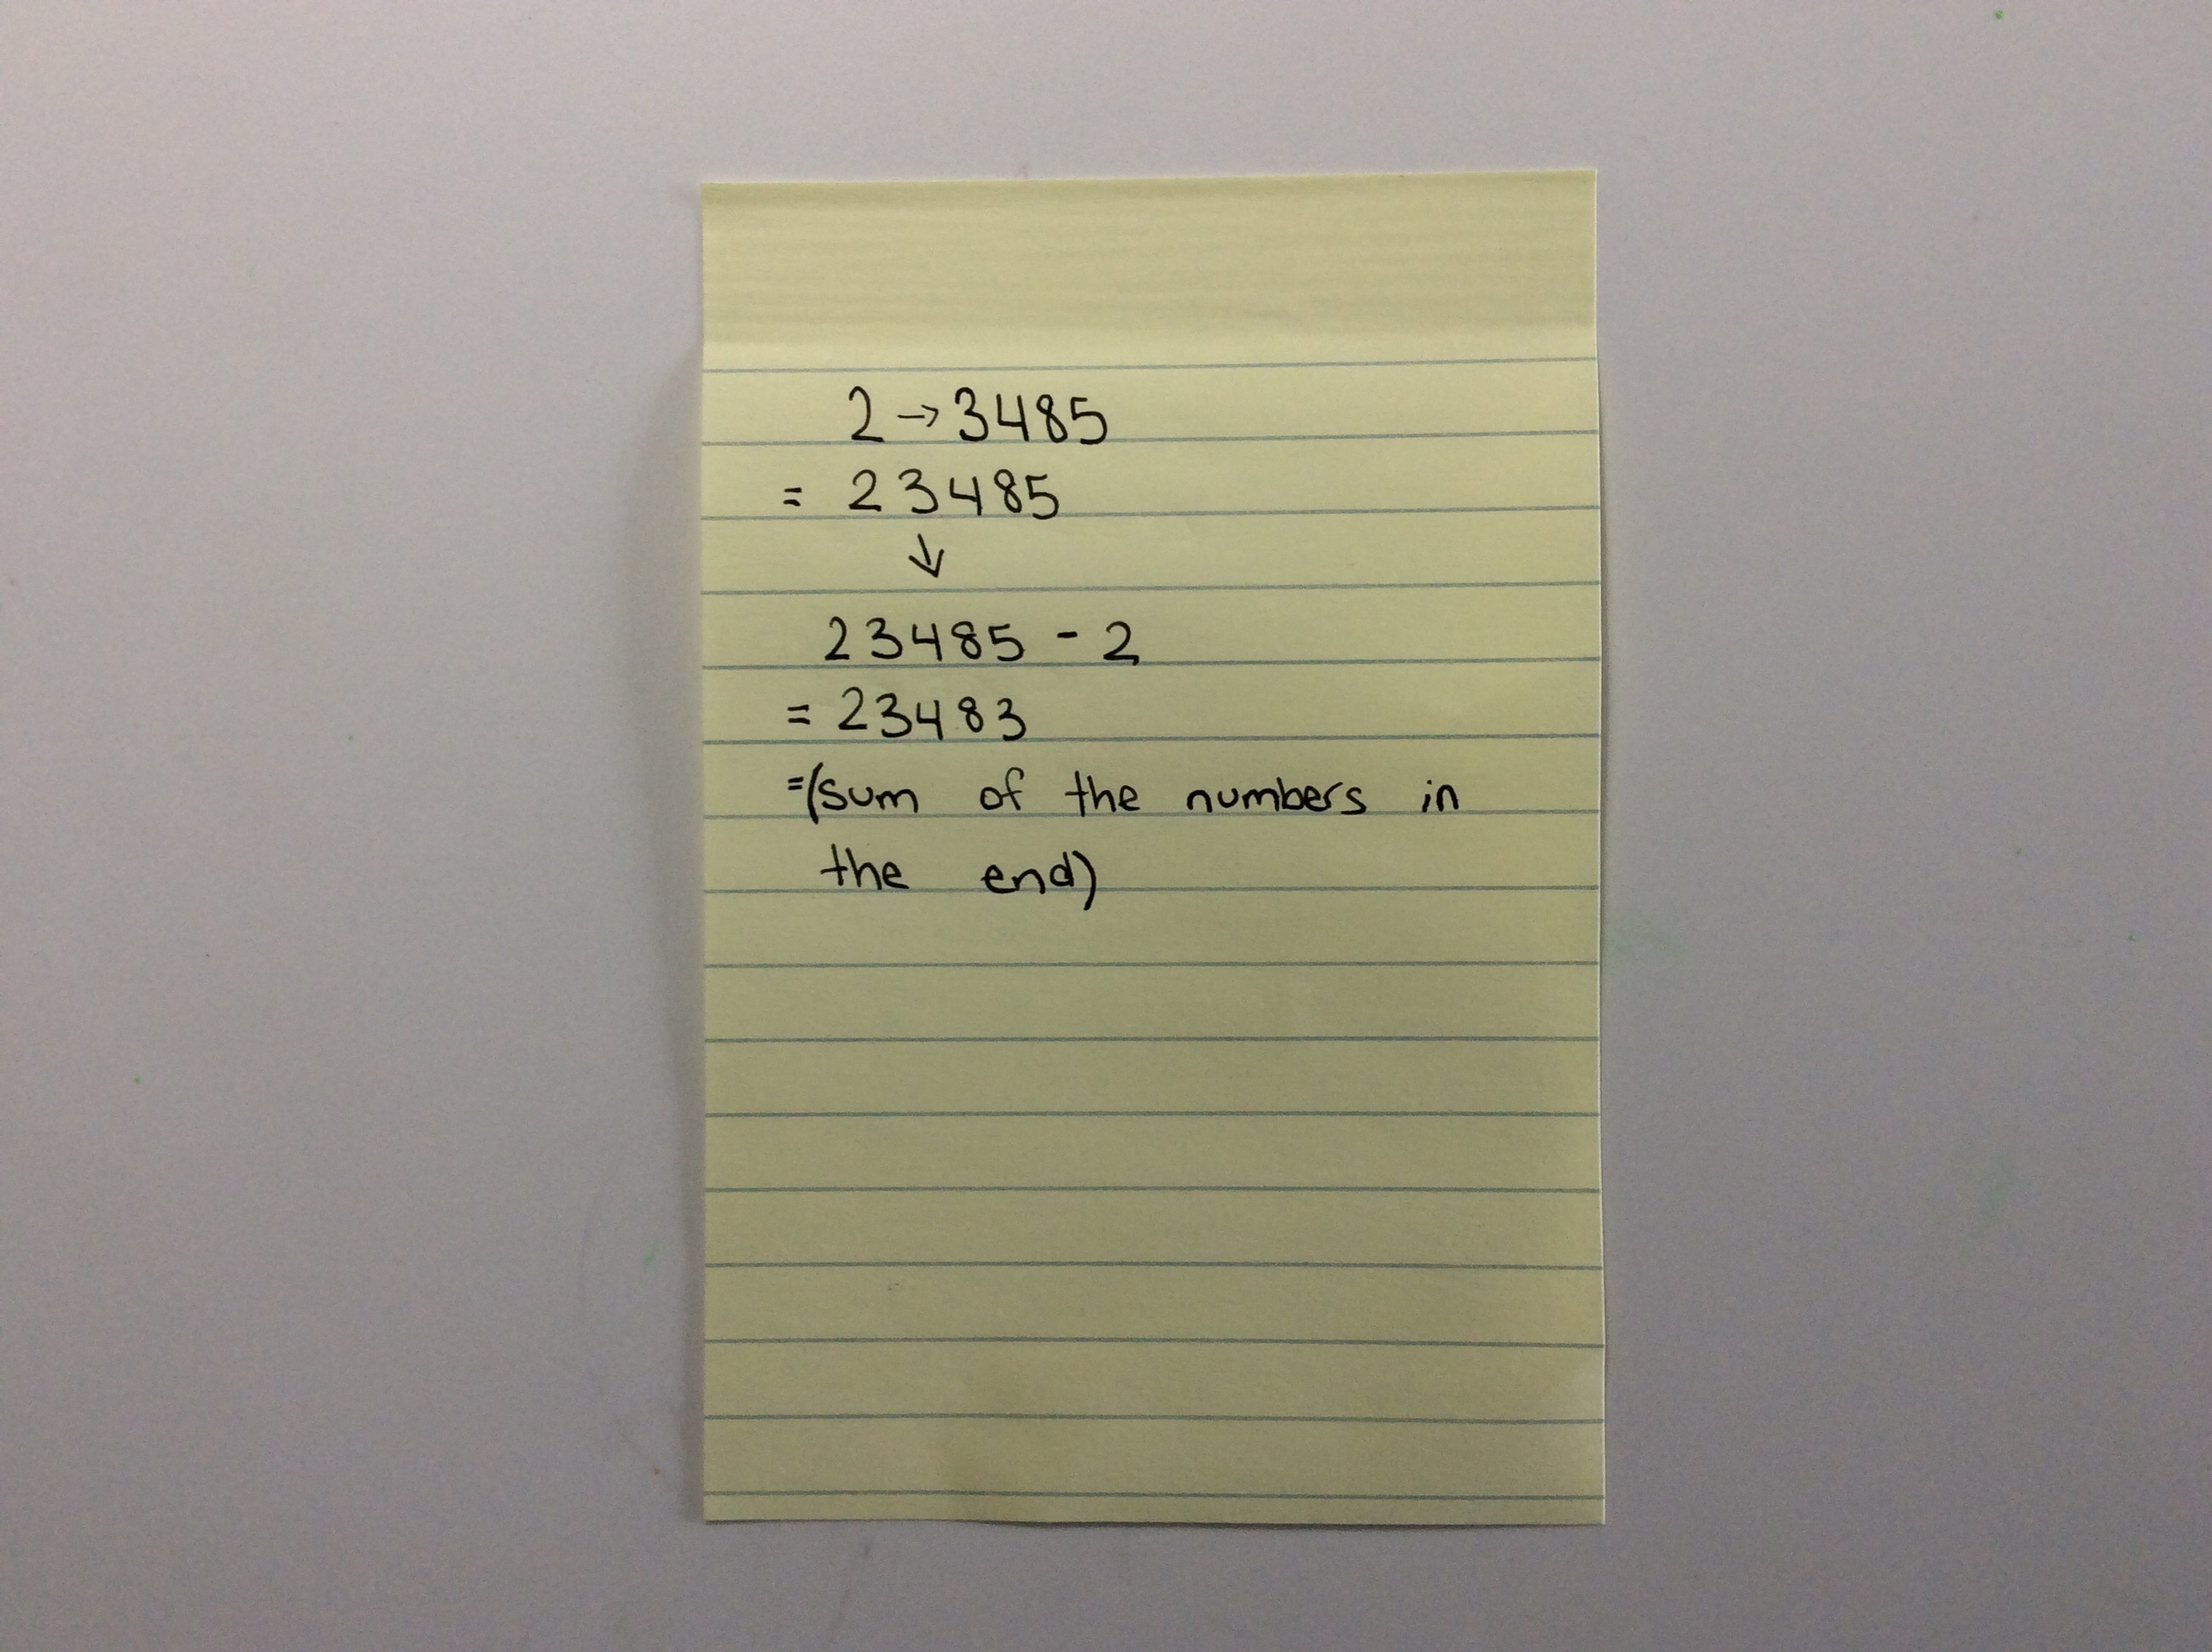 2 → 3485
= 23485
↓
23485 - 2
= 23483
=(sum of the numbers in
the end)